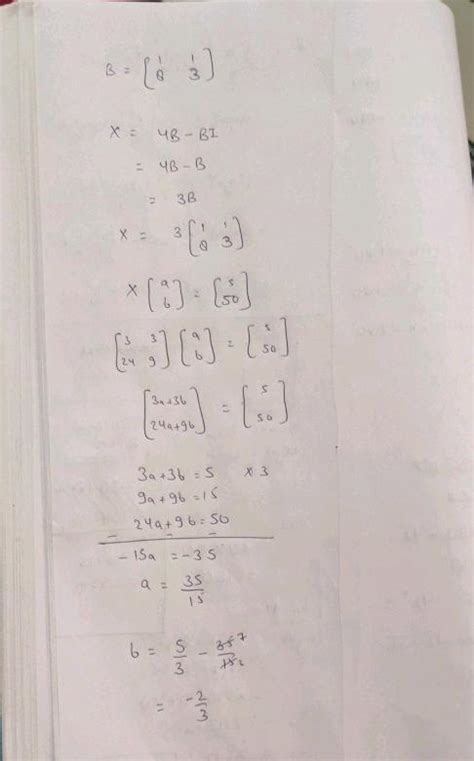 B = [1 1
8 3]
X = 4B - BI
= 4B - B
= 3B
X = 3 [1 1
8 3]
X [a
b] = [5
50]
[3 3
24 9] [a
b] = [5
50]
[3a+3b
24a+9b] = [5
50]
3a+3b = 5 × 3
9a+9b = 15
24a+9b = 50
- - -
-15a = -35
a = 35/15
b = 5/3 - 35 7/15
= -2/3